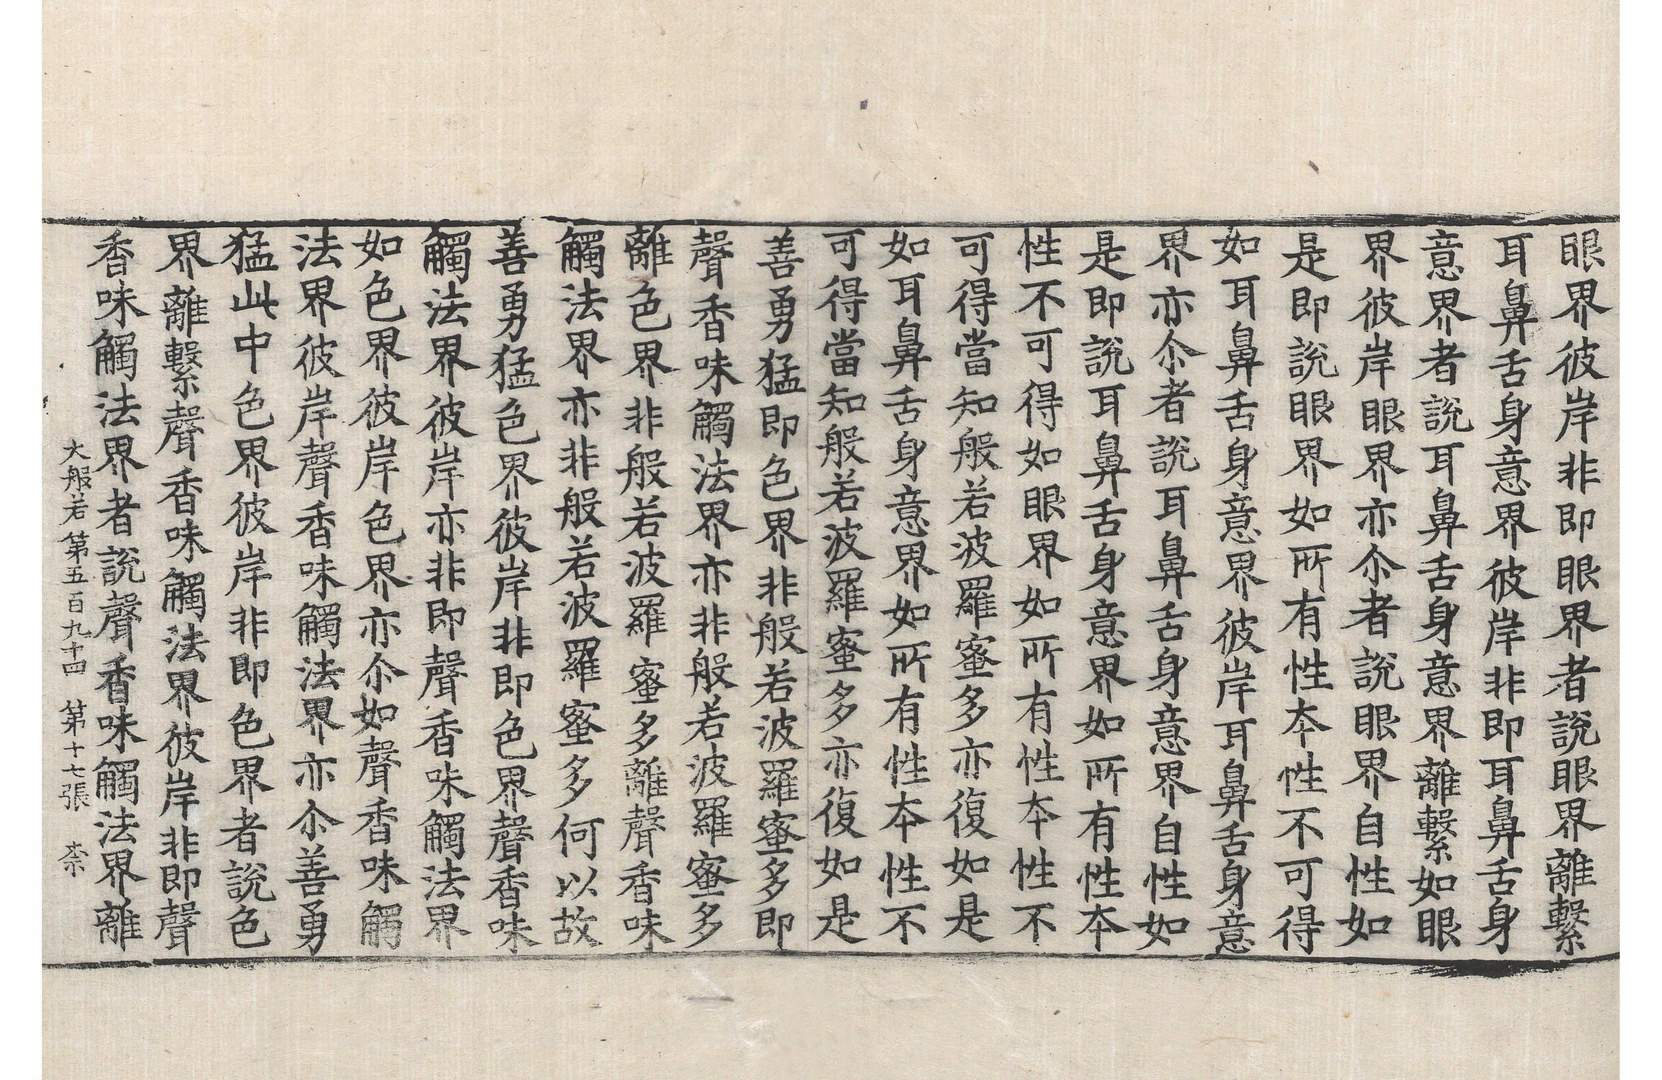 眼界彼岸非即眼界者說眼界離繫
耳鼻舌身意界彼岸非即耳鼻舌身
意界者說耳鼻舌身意界離繫如眼
界彼岸眼界亦尒者說眼界自性如
是即說眼界如所有性本性不可得
如耳鼻舌身意界彼岸耳鼻舌身意
界亦尒者說耳鼻舌身意界自性如
是即說耳鼻舌身意界如所有性本
性不可得如眼界如所有性本性不
可得當知般若波羅蜜多亦復如是
如耳鼻舌身意界如所有性本性不
可得當知般若波羅蜜多亦復如是
善勇猛即色界非般若波羅蜜多即
聲香味觸法界亦非般若波羅蜜多
離色界非般若波羅蜜多離聲香味
觸法界亦非般若波羅蜜多何以故
善勇猛色界彼岸非即色界聲香味
觸法界彼岸亦非即聲香味觸法界
如色界彼岸色界亦尒如聲香味觸
法界彼岸聲香味觸法界亦尒善勇
猛此中色界彼岸非即色界者說色
界離繫聲香味觸法界彼岸非即聲
香味觸法界者說聲香味觸法界離
大般若第五百九十四 第十七張 柰